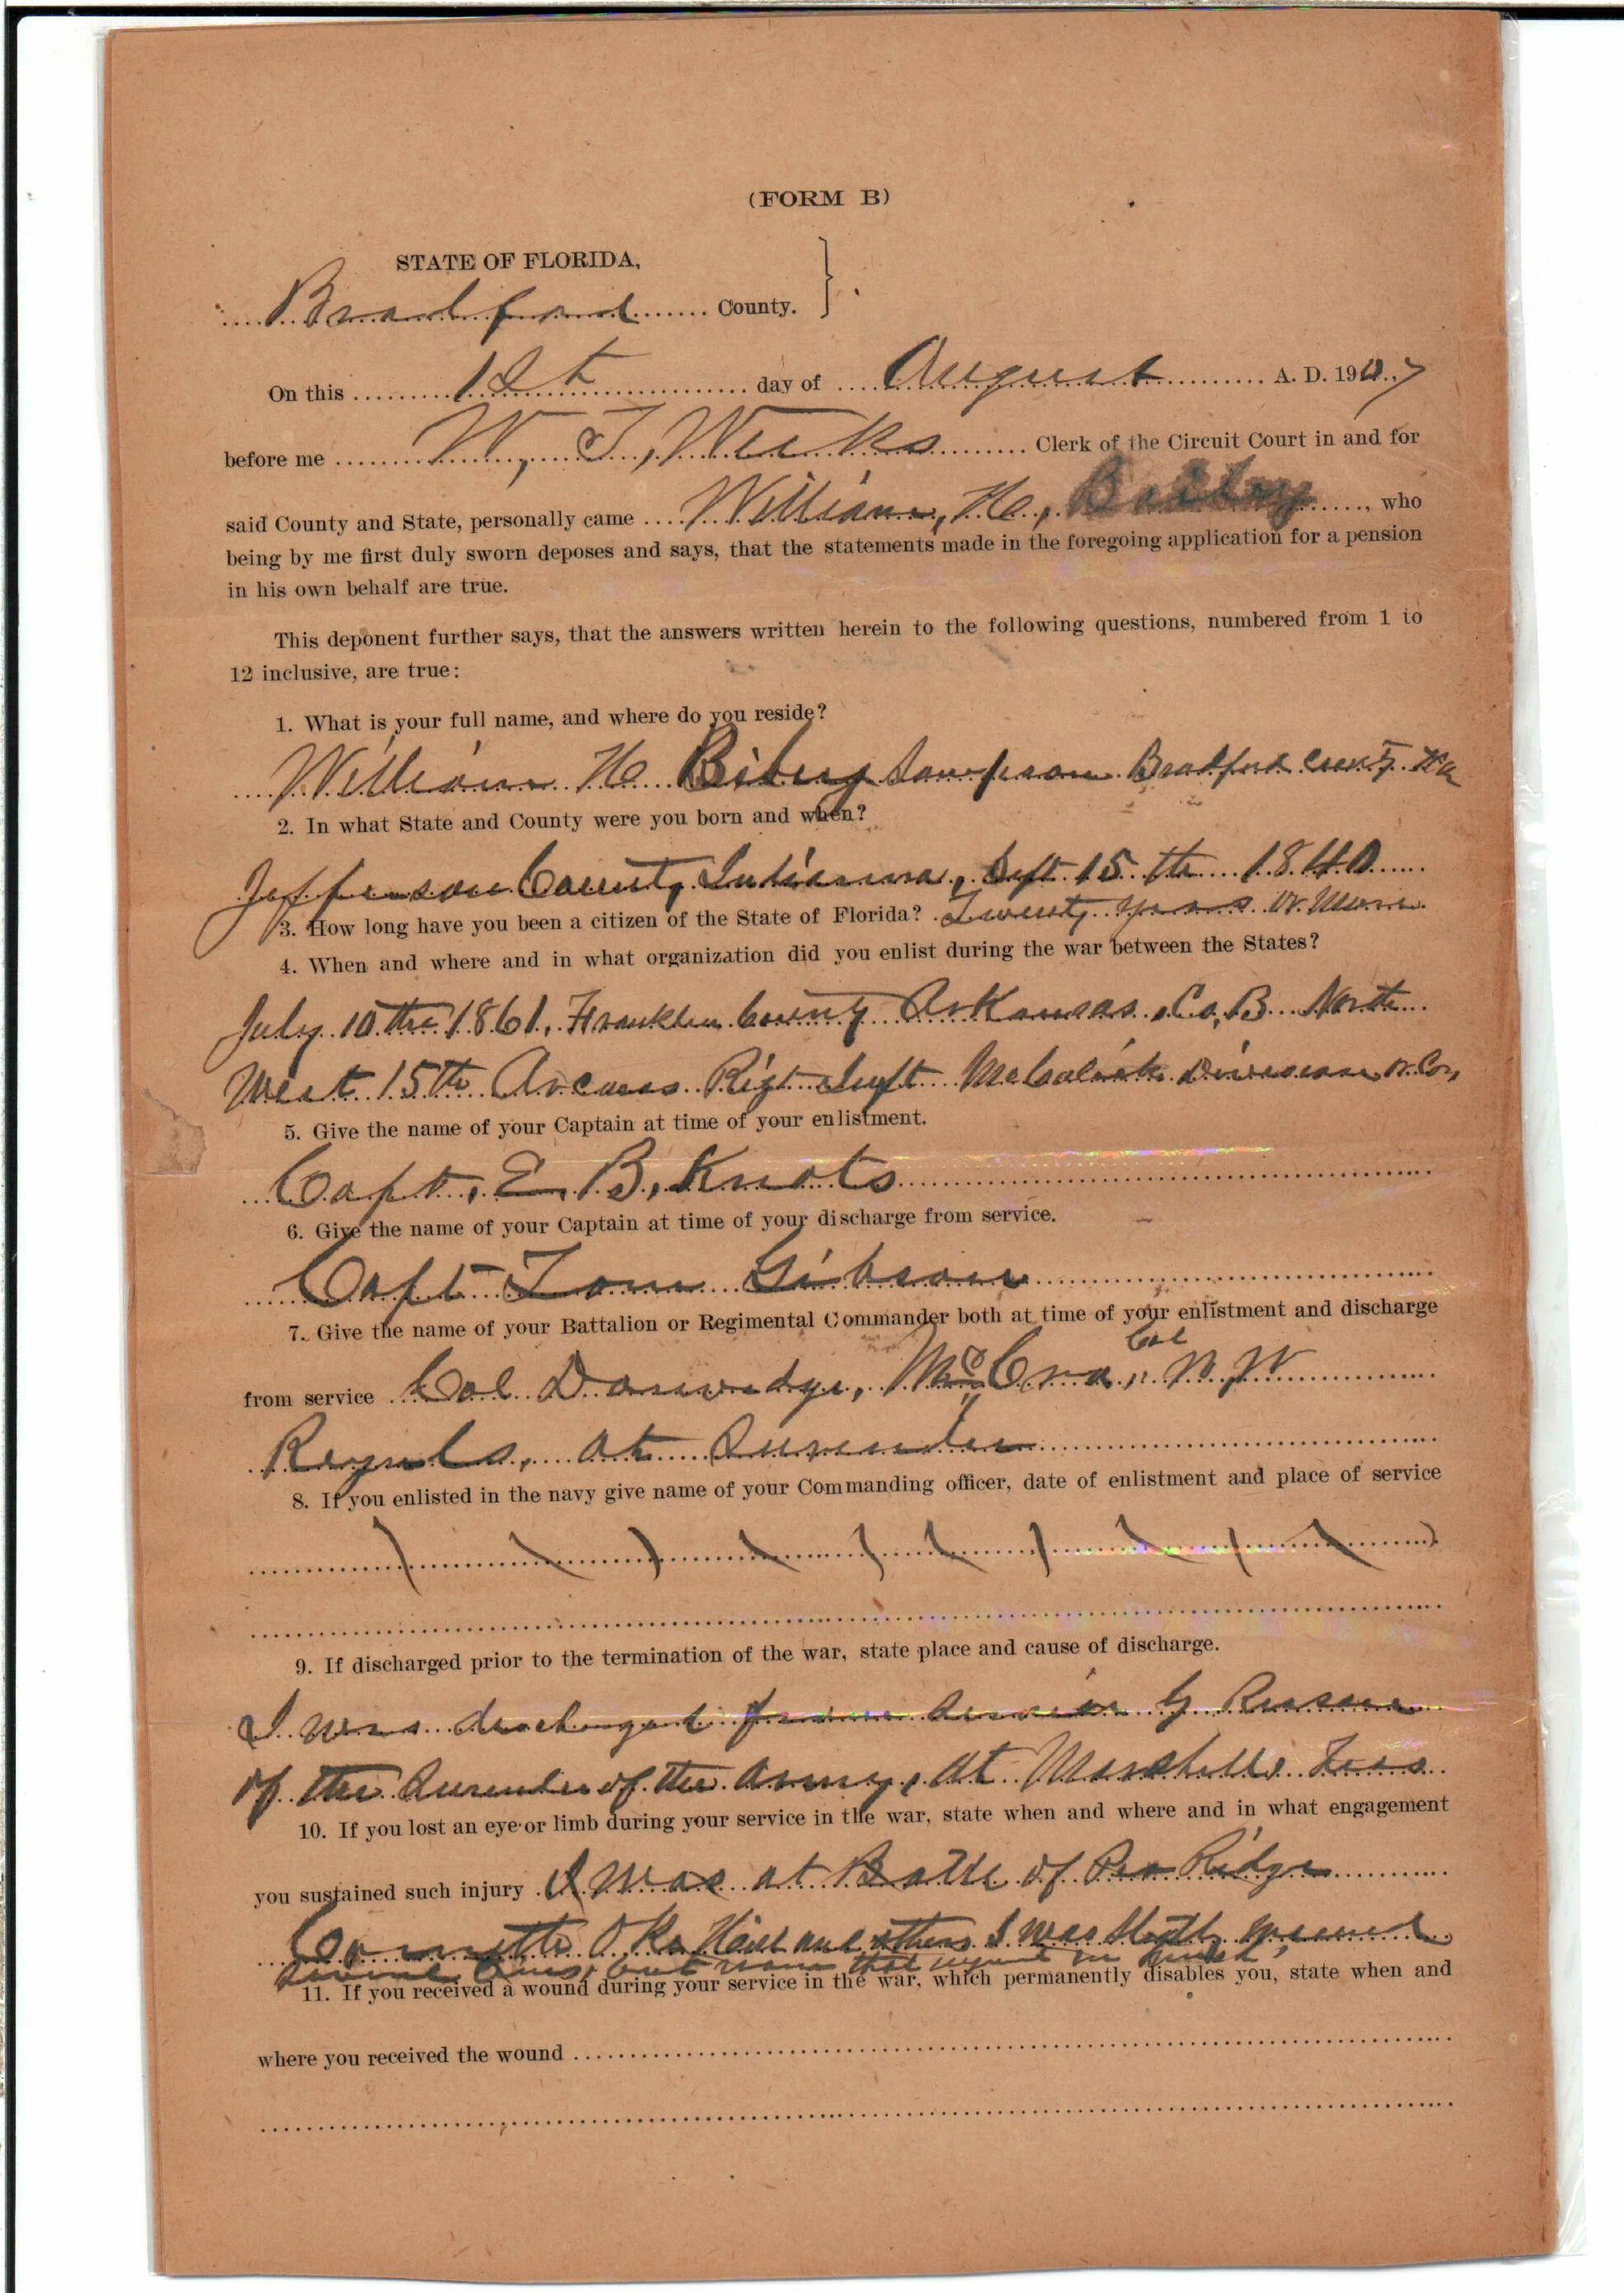 (FORM B)
STATE OF FLORIDA,
Bradford County.
On this 1st day of August A. D. 1907
before me W, T, Weeks Clerk of the Circuit Court in and for
said County and State, personally came William, H, , who
being by me first duly sworn deposes and says, that the statements made in the foregoing application for a pension
in his own behalf are true.
This deponent further says, that the answers written herein to the following questions, numbered from 1 to
12 inclusive, are true:
1. What is your full name, and where do you reside?
William H Bradford County Fla
2. In what State and County were you born and when?
Jefferson County, Indianna, Sept 15th 1840
3. How long have you been a citizen of the State of Florida? Twenty years or More
4. When and where and in what organization did you enlist during the war between the States?
July 10th 1861, Franklin County Arkansas, Co, B North
West 15th Regt Division
5. Give the name of your Captain at time of your enlistment.
Capt, E, B, Knots
6. Give the name of your Captain at time of your discharge from service.
Capt Tom Gibson
7. Give the name of your Battalion or Regimental Commander both at time of your enlistment and discharge
from service Col Col
at
8. If you enlisted in the navy give name of your Commanding officer, date of enlistment and place of service
9. If discharged prior to the termination of the war, state place and cause of discharge.
I was from by
of the of the army, at
10. If you lost an eye or limb during your service in the war, state when and where and in what engagement
you sustained such injury I was at Battle of Pea Ridge
others I was
but
11. If you received a wound during your service in the war, which permanently disables you, state when and
where you received the wound